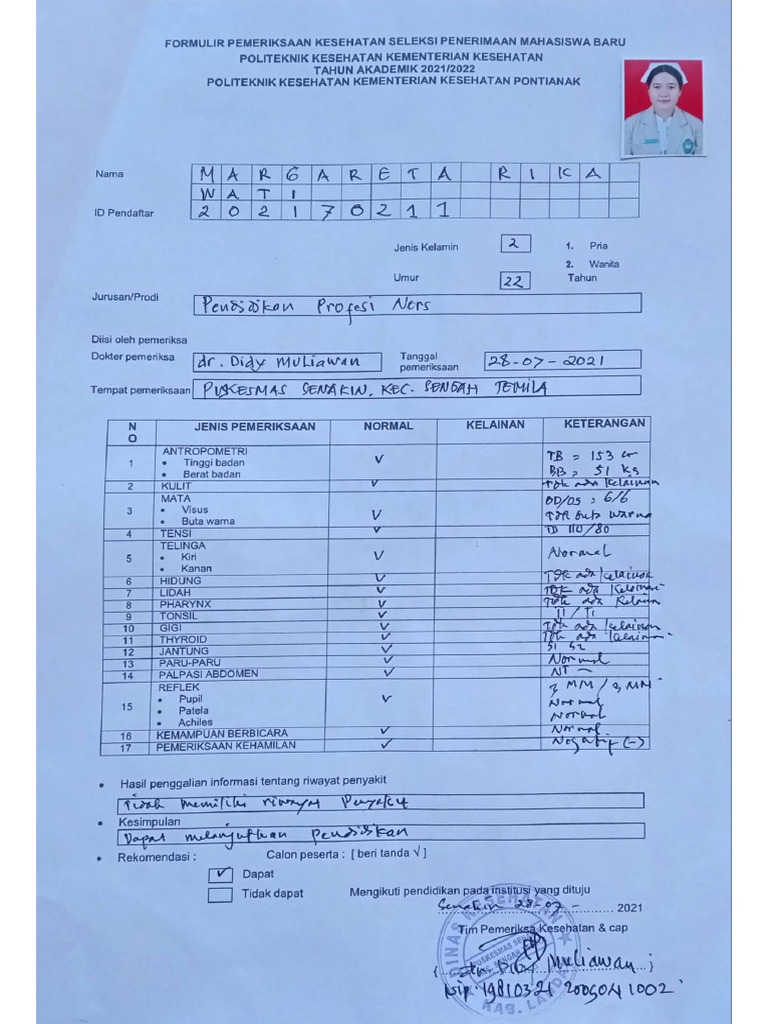 FORMULIR PEMERIKSAAN KESEHATAN SELEKSI PENERIMAAN MAHASISWA BARU
POLITEKNIK KESEHATAN KEMENTERIAN KESEHATAN
TAHUN AKADEMIK 2021/2022
POLITEKNIK KESEHATAN KEMENTERIAN KESEHATAN PONTIANAK
Nama MARGARETA RIKA
WATI
ID Pendaftar 2021170211
Jenis Kelamin 2 1. Pria
2. Wanita
Umur 22 Tahun
Jurusan/Prodi Pendidikan Profesi Ners
Diisi oleh pemeriksa
Dokter pemeriksa dr. Didy Muliawan Tanggal pemeriksaan 28-07-2021
Tempat pemeriksaan PUSKESMAS SENAKIN, KEC. SENGAH TEMILA
NO JENIS PEMERIKSAAN NORMAL KELAINAN KETERANGAN
1 ANTROPOMETRI
• Tinggi badan ✓ TB = 153 cm
• Berat badan BB = 51 kg
2 KULIT ✓ Tdk ada kelainan
3 MATA
• Visus OD/OS = 6/6
• Buta warna ✓ Tdk buta warna
4 TENSI ✓ TD 110/80
5 TELINGA
• Kiri ✓ Normal
• Kanan
6 HIDUNG ✓ Tdk ada kelainan
7 LIDAH ✓ Tdk ada kelainan
8 PHARYNX ✓ Tdk ada kelainan
9 TONSIL ✓ T1/T1
10 GIGI ✓ Tdk ada kelainan
11 THYROID ✓ Tdk ada kelainan
12 JANTUNG ✓ S1 S2
13 PARU-PARU ✓ Normal
14 PALPASI ABDOMEN ✓ NT -
15 REFLEK
• Pupil ✓ 3 MM / 3 MM
• Patela Normal
• Achiles Normal
16 KEMAMPUAN BERBICARA ✓ Normal
17 PEMERIKSAAN KEHAMILAN ✓ Negatif (-)
• Hasil penggalian informasi tentang riwayat penyakit
Tidak memiliki riwayat Penyakit
• Kesimpulan
Dapat melanjutkan pendidikan
• Rekomendasi : Calon peserta : [ beri tanda √ ]
✓ Dapat
Tidak dapat Mengikuti pendidikan pada institusi yang dituju
Senakin 28-07- 2021
Tim Pemeriksa Kesehatan & cap
Muliawan
Nip. 19810321 200504 1002
DINAS KESEHATAN
PUSKESMAS